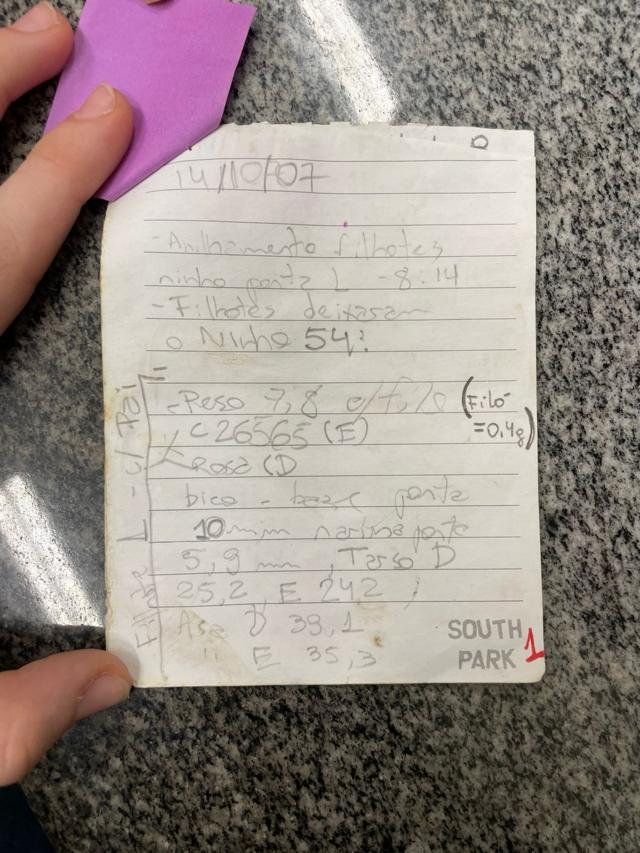 14/10/07
- Anilhamento filhotes
ninho ponta L - 8:14
- Filhotes deixaram
o Ninho 54?
- Peso 7,8 c/filó (Filó = 0,4g)
C26565 (E)
Rosa (D
bico - base ponta
10 mm narina ponta
5,9 mm, Tarso D
25,2, E 242
Asa D 39,1
" E 35,3
L - c/ Pai
SOUTH
PARK
1